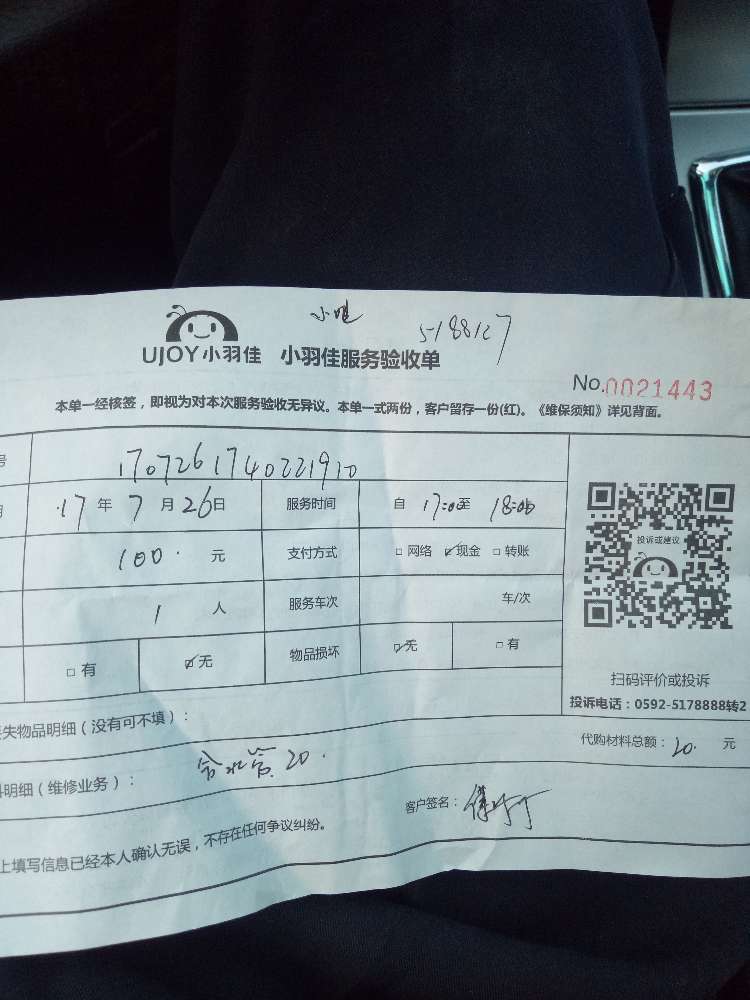 5188127
UJOY小羽佳 小羽佳服务验收单
No.0021443
本单一经核签，即视为对本次服务验收无异议。本单一式两份，客户留存一份(红)。《维保须知》详见背面。
号 1707261740221910
17年7月26日 服务时间 自17:00至18:00
100.元 支付方式 □网络 ☑现金 □转账
1人 服务车次 车/次
□有 ☑无 物品损坏 ☑无 □有
投诉或建议
扫码评价或投诉
投诉电话：0592-5178888转2
失物品明细（没有可不填）：
代购材料总额：20.元
明细（维修业务）： 水管 20.
客户签名：
上填写信息已经本人确认无误，不存在任何争议纠纷。